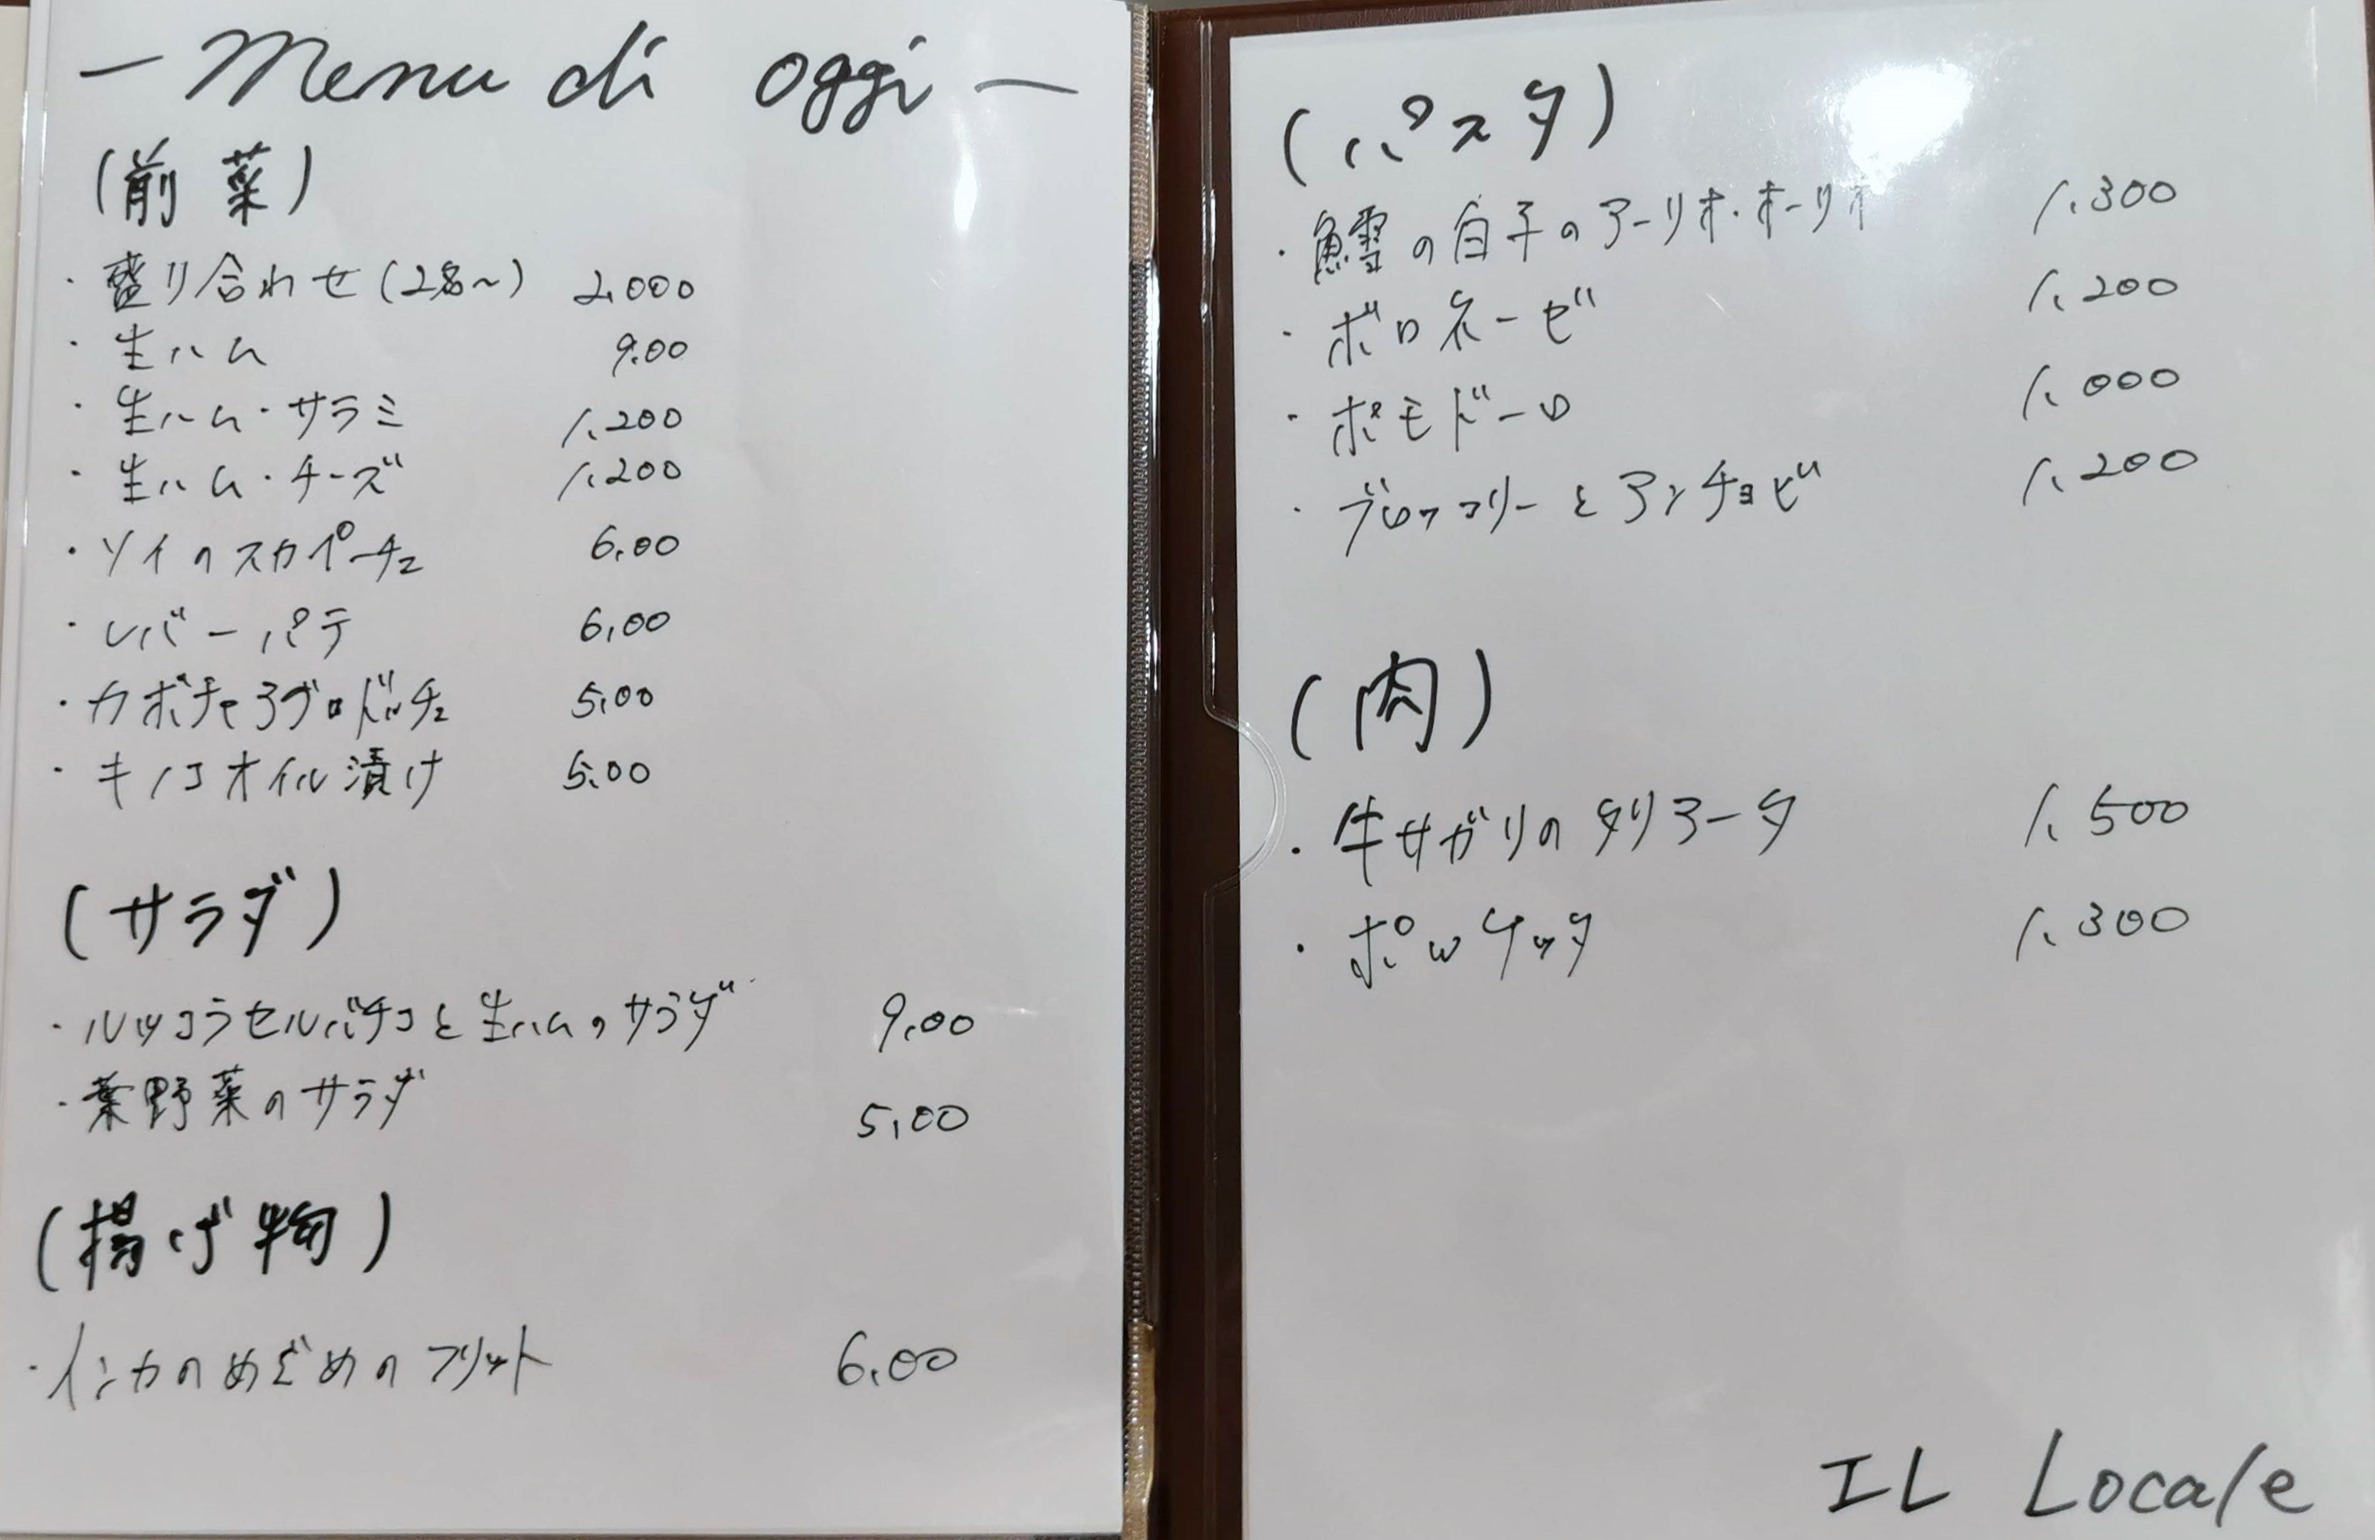 — Menu di oggi —
(前菜)
・盛り合わせ(2名~) 2,000
・生ハム 9.00
・生ハム・サラミ 1,200
・生ハム・チーズ 1,200
・ソイのスカペーチェ 6,00
・レバーパテ 6,00
・カボチャアグロドルチェ 5,00
・キノコオイル漬け 5,00
(サラダ)
・ルッコラセルバチコと生ハムのサラダ 9,00
・葉野菜のサラダ 5,00
(揚げ物)
・インカのめざめのフリット 6,00
(パスタ)
・鱈の白子のアーリオ・オーリオ 1,300
・ボロネーゼ 1,200
・ポモドーロ 1,000
・ブロッコリーとアンチョビ 1,200
(肉)
・牛サガリのタリアータ 1,500
・ポルケッタ 1,300
IL Locale